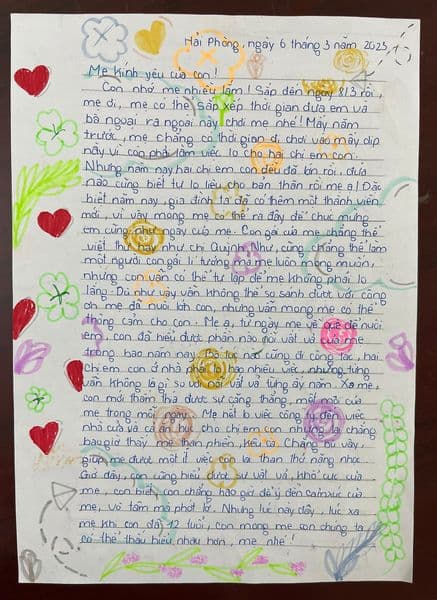 Hải Phòng, ngày 6 tháng 3 năm 2025
Mẹ kính yêu của con!
Con nhớ mẹ nhiều lắm! Sắp đến ngày 8/3 rồi,
mẹ ơi, mẹ có thể sắp xếp thời gian đưa em và
bà ngoại ra ngoài này chơi mẹ nhé! Mấy năm
trước, mẹ chẳng có thời gian đi chơi vào mấy dịp
này vì còn phải làm việc lo cho hai chị em con.
Nhưng năm nay hai chị em con đều đã lớn rồi, đứa
nào cũng biết tự lo liệu cho bản thân rồi mẹ ạ! Đặc
biệt năm nay, gia đình ta đã có thêm một thành viên
mới, vì vậy mong mẹ có thể ra đây để chúc mừng
em cũng như ngày của mẹ. Con gái của mẹ chẳng thể
viết thư hay như chị Quỳnh Như, cũng không thể làm
một người con gái lí tưởng mà mẹ luôn mong muốn,
nhưng con vẫn có thể tự lập để mẹ không phải lo
lắng. Dù như vậy vẫn không thể so sánh được với công
ơn mẹ đã nuôi lớn con, nhưng vẫn mong mẹ có thể
thông cảm cho con. Mẹ ạ, từ ngày mẹ về quê để nuôi
em, con đã hiểu được phần nào nỗi vất vả của mẹ
trong bao năm nay. Bố thì nay cũng đi công tác, hai
chị em con ở nhà phải bao nhiêu việc, nhưng từng
vẫn không là gì so với nỗi vất vả từng ấy năm. Xa mẹ,
con mới thấm thía được sự căng thẳng, mệt mỏi của
mẹ trong mỗi ngày. Mẹ hết lo việc công lại đến việc
nhà cửa và cả ăn học cho chị em con nhưng lại chẳng
bao giờ thấy mẹ than phiền, kêu ca. Chẳng bù vậy,
giúp mẹ được một ít việc con lại than thở nặng nhọc.
Giờ đây, con cũng hiểu được sự vất vả, khổ cực của
mẹ, con biết con chẳng bao giờ để ý đến cảm xúc của
mẹ, vô tâm mà phớt lờ. Nhưng lúc này đây, lúc xa
mẹ khi con đã 12 tuổi, con mong mẹ con chúng ta
có thể thấu hiểu nhau hơn, mẹ nhé!